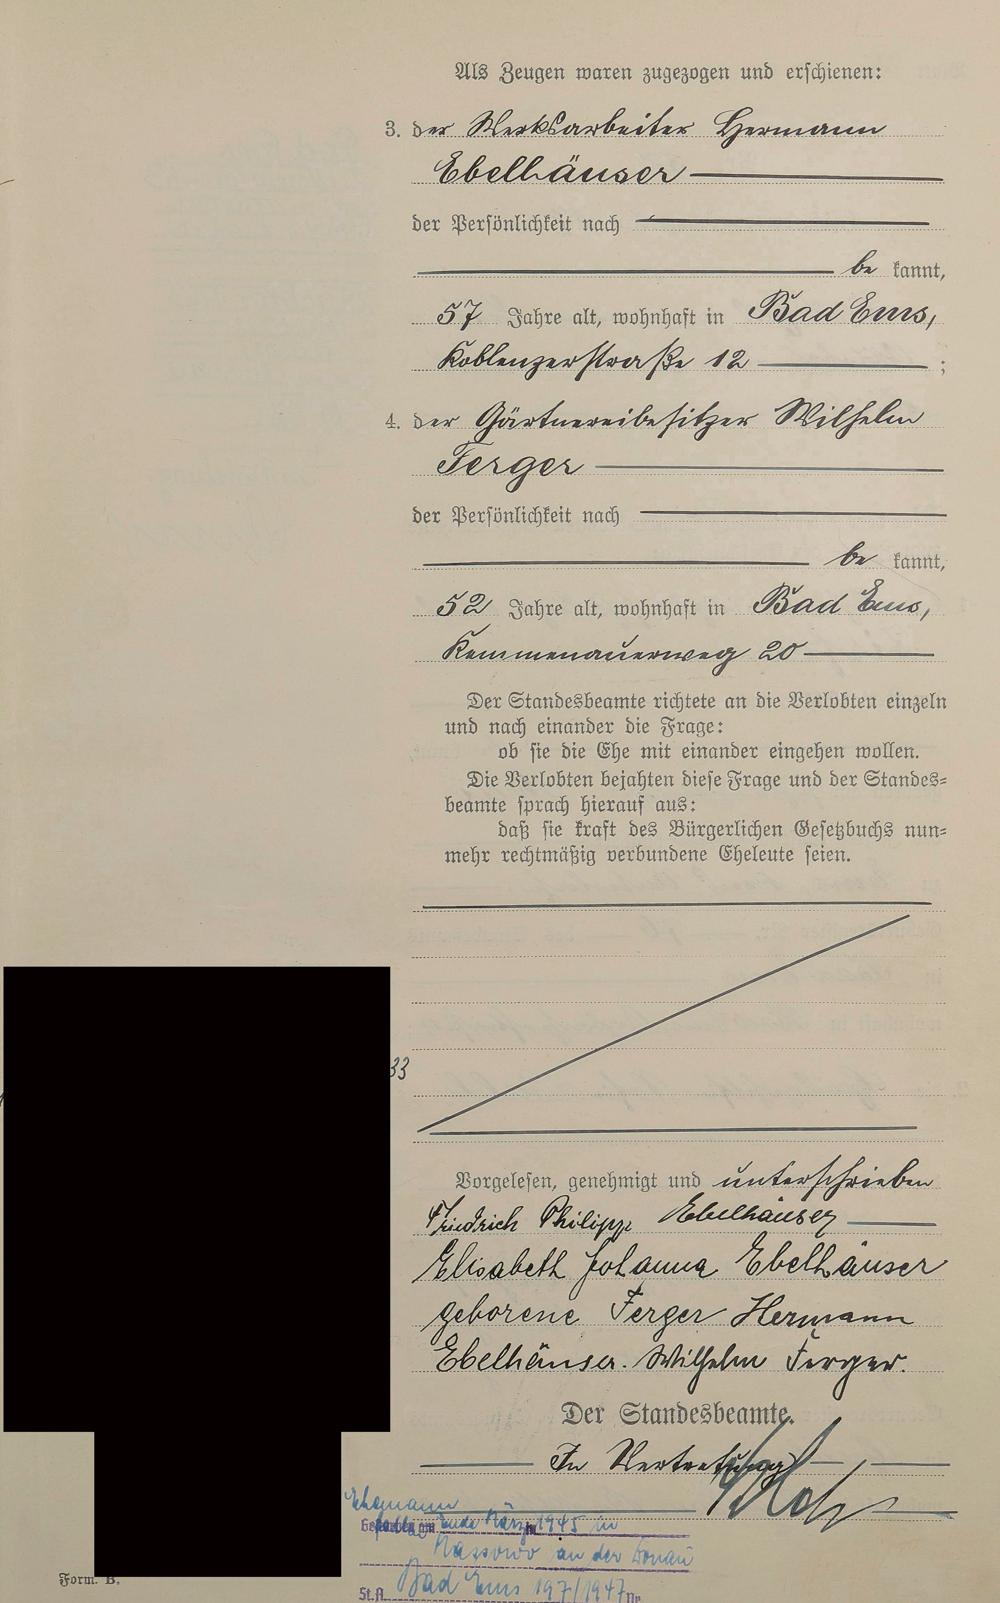 Als Zeugen waren zugezogen und erschienen:
3. der Werksarbeiter Hermann
Ebelhäuser
der Persönlichkeit nach
be kannt,
57 Jahre alt, wohnhaft in Bad Ems,
Koblenzerstraße 12 ;
4. der Gärtnereibesitzer Wilhelm
Ferger
der Persönlichkeit nach
be kannt,
52 Jahre alt, wohnhaft in Bad Ems,
Kemmenauerweg 20
Der Standesbeamte richtete an die Verlobten einzeln
und nach einander die Frage:
ob sie die Ehe mit einander eingehen wollen.
Die Verlobten bejahten diese Frage und der Standes-
beamte sprach hierauf aus:
daß sie kraft des Bürgerlichen Gesetzbuchs nun-
mehr rechtmäßig verbundene Eheleute seien.
33
Vorgelesen, genehmigt und unterschrieben
Friedrich Philipp Ebelhäuser
Elisabeth Johanna Ebelhäuser
geborene Ferger Hermann
Ebelhäuser. Wilhelm Ferger.
Der Standesbeamte.
In Vertretung
Ehemann
Ende März 1945 in
an der Donau
St.A. Bad Ems 197/1947 Nr.
Form. B.